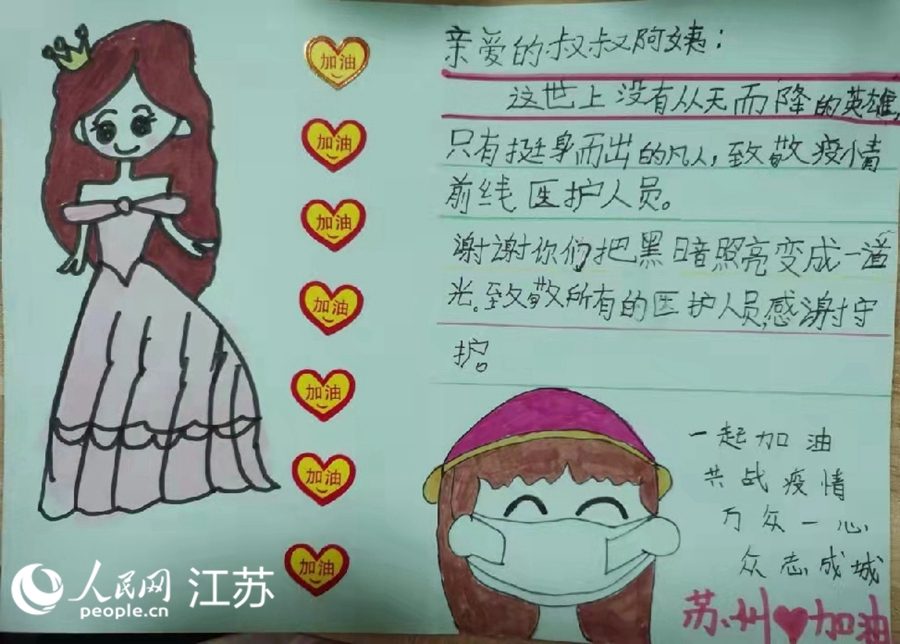 加油
加油
加油
加油
加油
加油
加油
亲爱的叔叔阿姨：
这世上没有从天而降的英雄，
只有挺身而出的凡人，致敬疫情
前线医护人员。
谢谢你们把黑暗照亮变成一道
光。致敬所有的医护人员，感谢守
护。
一起加油
共战疫情
万众一心
众志成城
苏州❤加油
人民网 江苏
people.cn